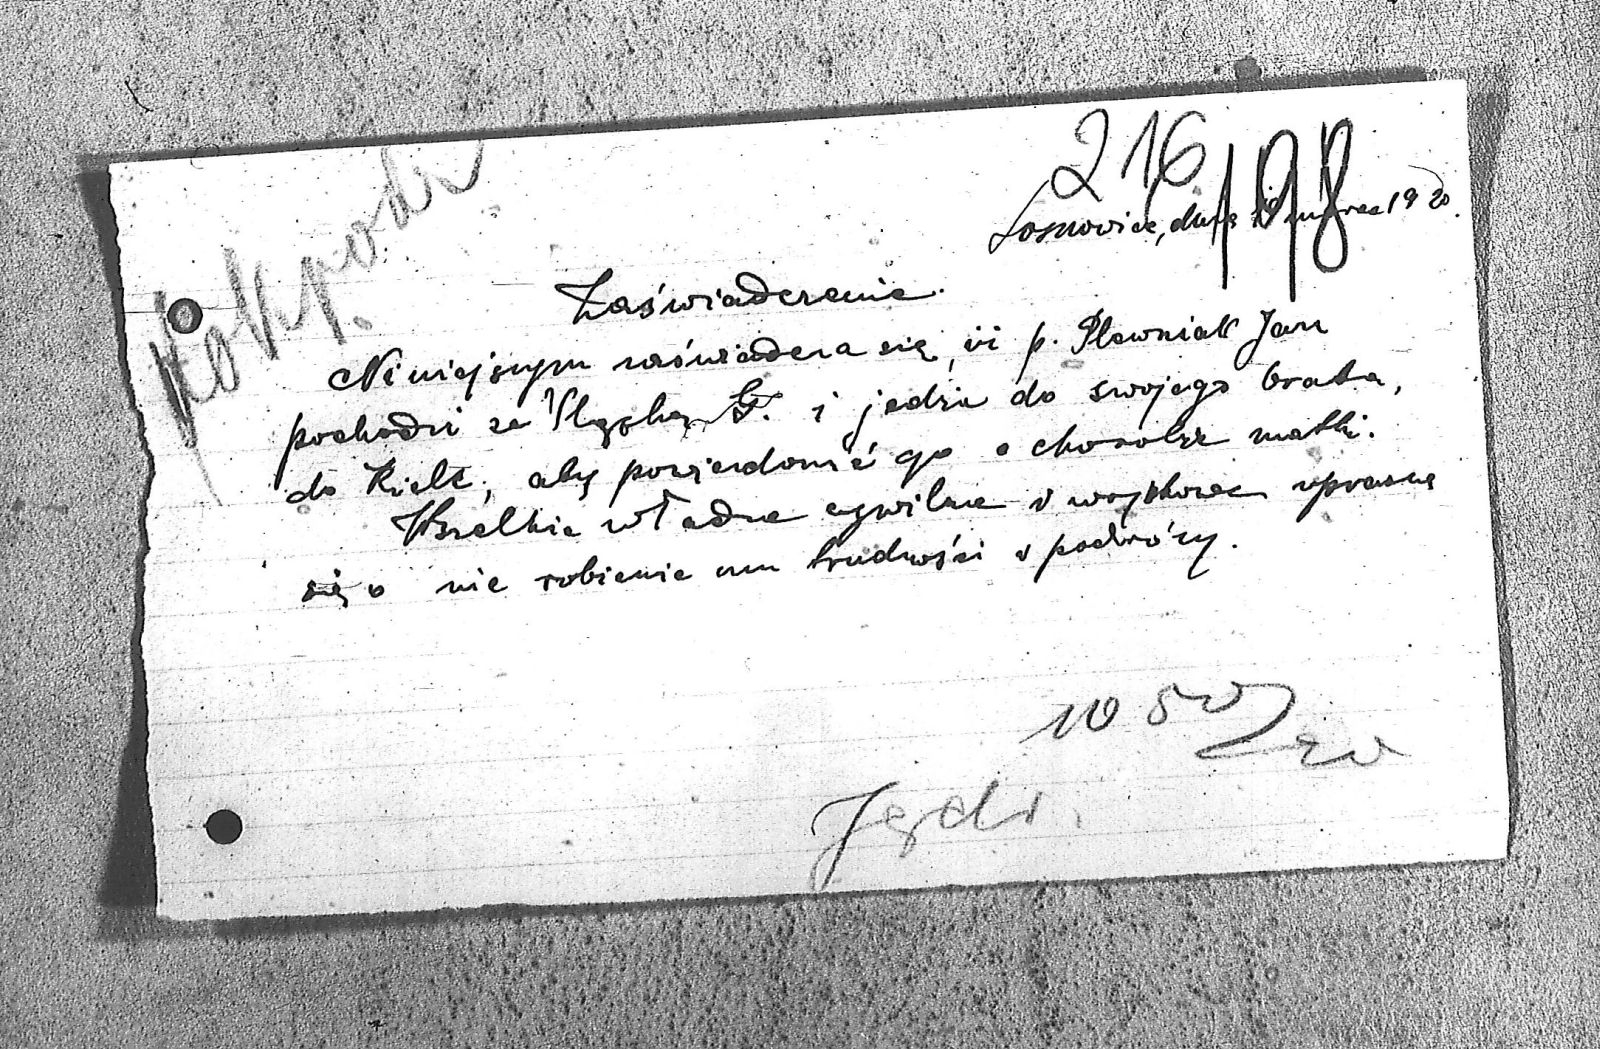 216
198
Sosnowice, dnia marca 1920.
Zaświadczenie.
Niniejszym zaświadcza się, iż p. Plewniak Jan
pochodzi ze Śląska G. i jedzie do swojego brata,
do Kielc, aby powiedomić go o chorobie matki.
Wszelkie władze cywilne i wojskowe uprasza
się o nie robienie mu trudności w podróży.